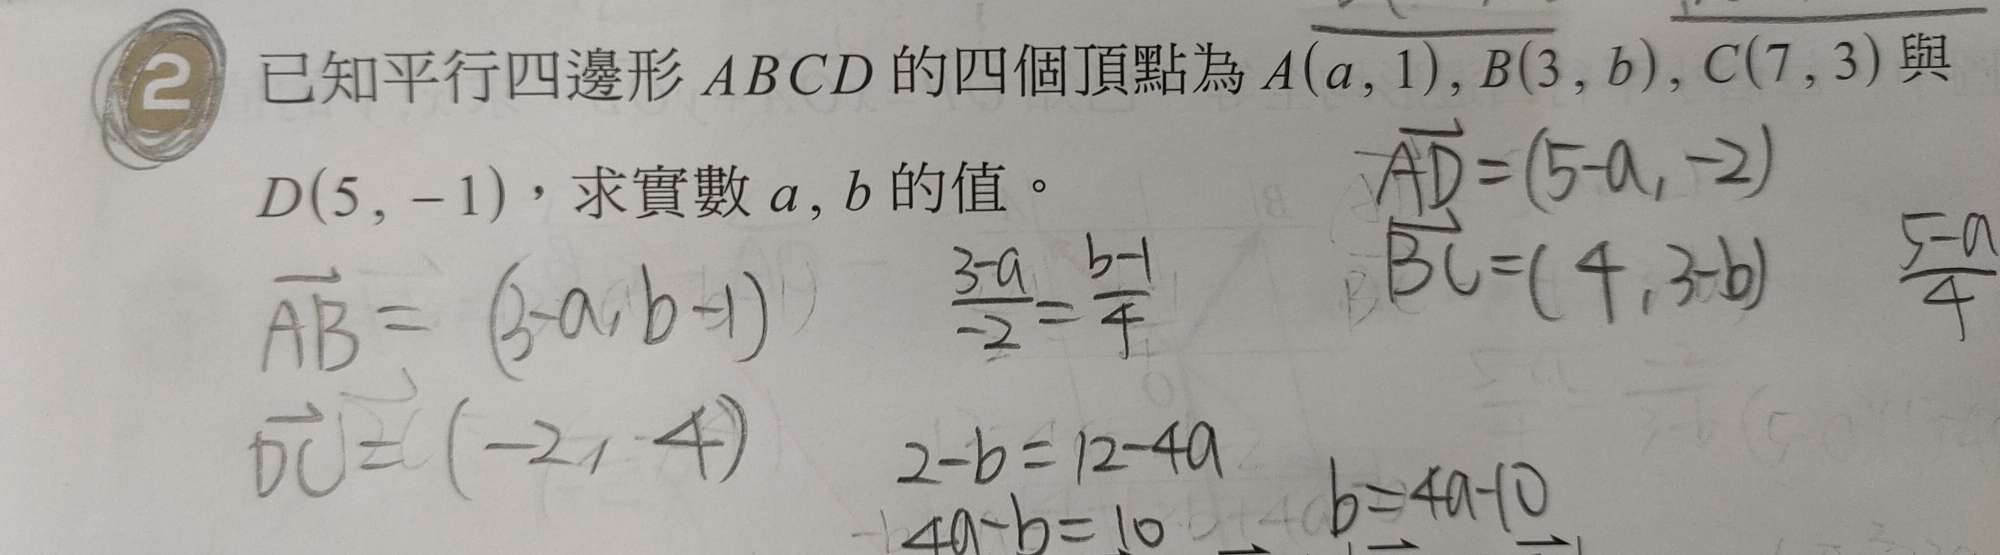 2 已知平行四邊形 ABCD 的四個頂點為 A(a, 1), B(3, b), C(7, 3) 與
D(5, -1)，求實數 a, b 的值。
AD = (5-a, -2)
BC = (4, 3-b)
5-a/4
AB = (3-a, b-1)
3-a/-2 = b-1/4
DC = (-2, 4)
2-b = 12-4a
4a-b = 10
b = 4a-10